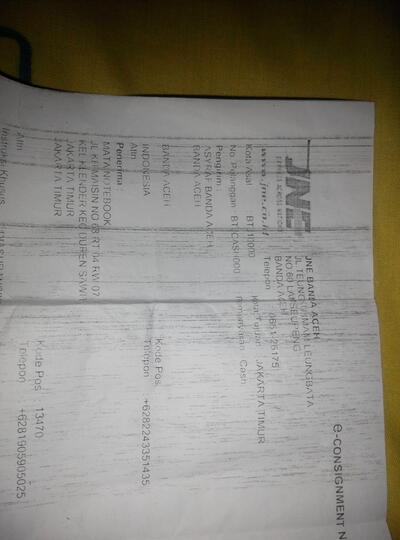 e-CONSIGNMENT N
JNE
EXPRESS ACROSS NATIONS
www.jne.co.id
JNE BANDA ACEH
JL TEUNGKU IMAM LEUNGBATA
NO.60 LAMSEUPEUNG
BANDA ACEH
Telepon 0651 26175
Kota Asal BTJ10000
Kota Tujuan JAKARTA TIMUR
No. Pelanggan BTJCASH000
Pembayaran Cash
Pengirim :
ASYRAF BANDA ACEH
BANDA ACEH
BANDA ACEH
Kode Pos
INDONESIA
Telepon +6282243351435
Attn
Penerima :
MATA NOTEBOOK
JL KERMUSIN NO 03 RT 04 RW 07
KEL KLENDER KEC DUREN SAWIT
JAKARTA TIMUR
JAKARTA TIMUR
Kode Pos 13470
Telepon +6281905905025
Attn
Instruksi Khusus